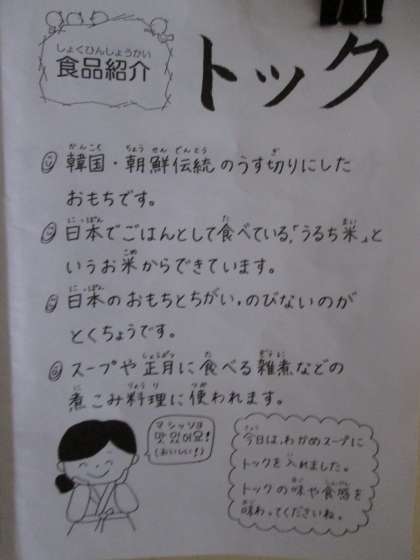 しょくひんしょうかい
食品紹介
トック
韓国・朝鮮伝統のうす切りにした
おもちです。
日本でごはんとして食べている、「うるち米」と
いうお米からできています。
日本のおもちとちがい、のびないのが
とくちょうです。
スープや正月に食べる雑煮などの
煮こみ料理に使われます。
マシッソヨ
맛있어요!
(おいしい!)
今日は、わかめスープに
トックを入れました。
トックの味や食感を
味わってくださいね。